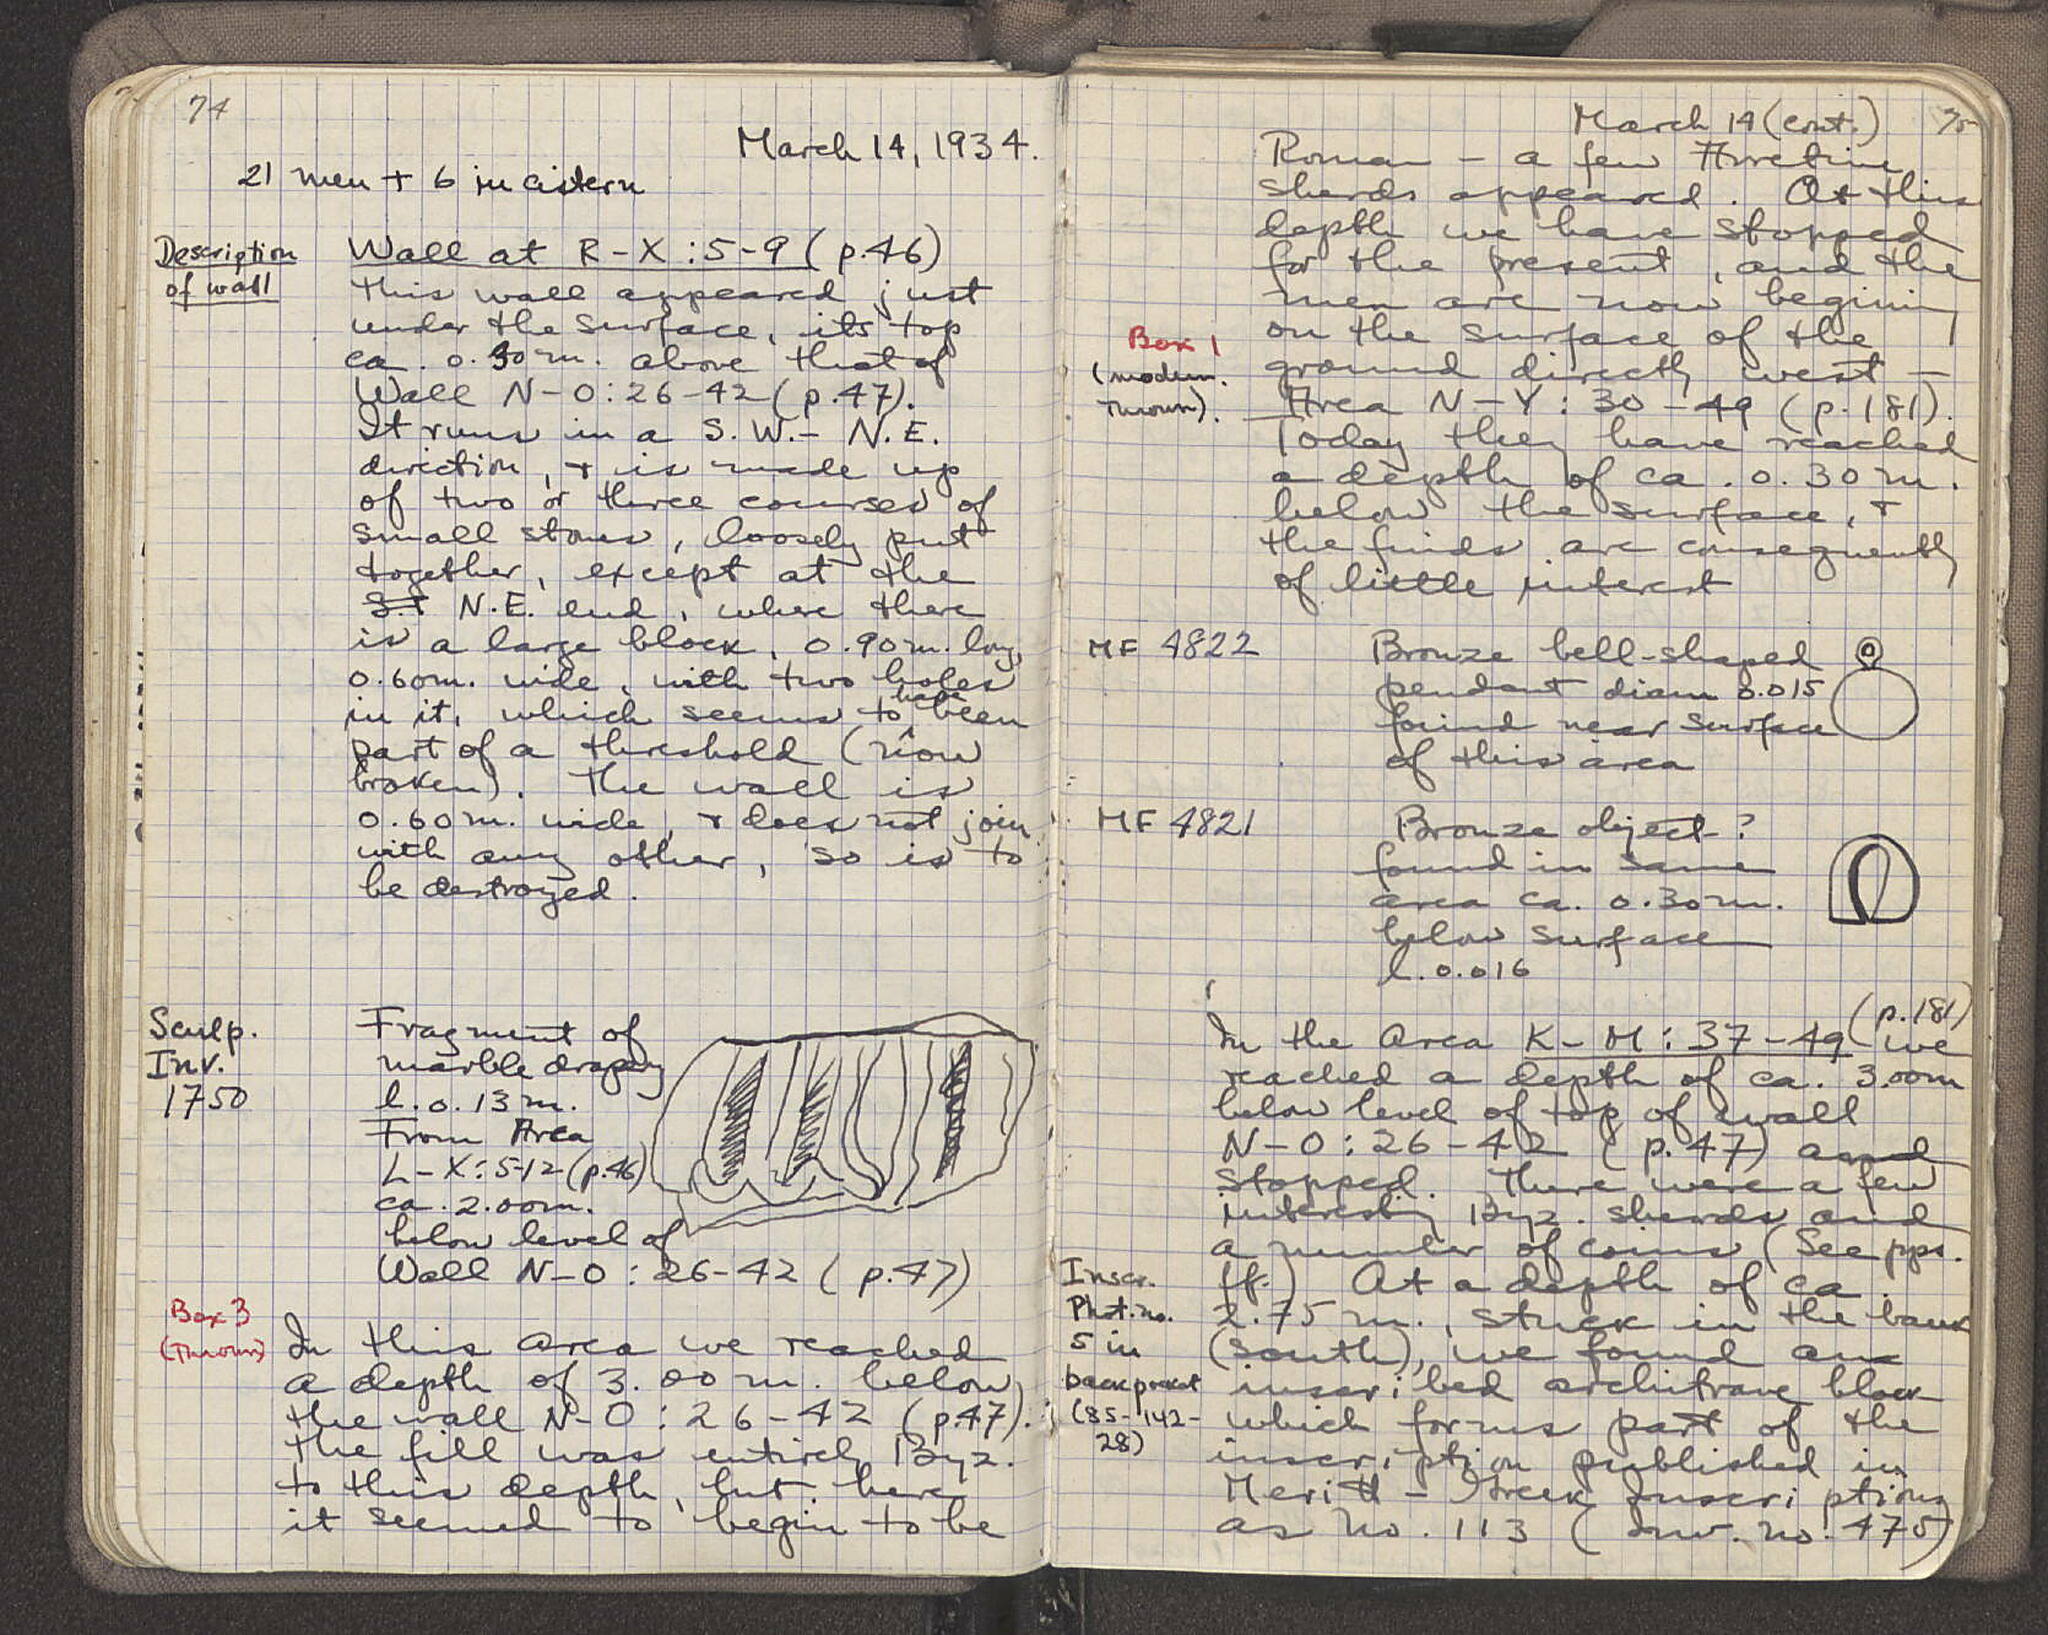 74
March 14, 1934.
21 men + 6 in cistern
Description
of wall
Wall at R-X:5-9 (p.46)
This wall appeared just
under the surface, its top
ca. 0.30m. above that of
Wall N-O:26-42 (p.47).
It runs in a S.W.- N.E.
direction, + is made up
of two or three courses of
small stones, loosely put
together, except at the
N.E. end, where there
is a large block, 0.90m. long,
0.60m. wide, with two holes
in it, which seems to have been
part of a threshold (now
broken). The wall is
0.60m. wide, + does not join
with any other, so is to
be destroyed.
Sculp.
Inv.
1750
Fragment of
marble drapery
l. 0.13m.
From Area
L-X:5-12 (p.46)
ca. 2.00m.
below level of
Wall N-O:26-42 (p.47)
Box 3
(Thrown)
In this area we reached
a depth of 3.00m. below
the wall N-O:26-42 (p.47).
The fill was entirely Byz.
to this depth, but here
it seemed to begin to be
March 14 (cont.) 75
Roman - a few Arretine
sherds appeared. At this
depth we have stopped
for the present, and the
men are now begining
on the surface of the
ground directly west -
Area N-Y:30-49 (p.181).
Box 1
(modern.
Thrown).
Today they have reached
a depth of ca. 0.30m.
below the surface, +
the finds are consequently
of little interest
MF 4822
Bronze bell-shaped
pendant diam 0.015
found near surface
of this area
MF 4821
Bronze object?
found in same
area ca. 0.30m.
below surface
l. 0.016
In the Area K-M:37-49 (p.181) we
reached a depth of ca. 3.00m
below level of top of wall
N-O:26-42 (p.47) and
stopped. There were a few
interesting Byz. sherds and
a number of coins (See pps.
ff.) At a depth of ca
2.75m., stuck in the bank
(south), we found an
inscribed architrave block
which forms part of the
inscription published in
Meritt - Greek Inscriptions
as no. 113 (Inv. no. 475)
Inscr.
Phot. no.
5 in
back pocket
(85-142-
28)